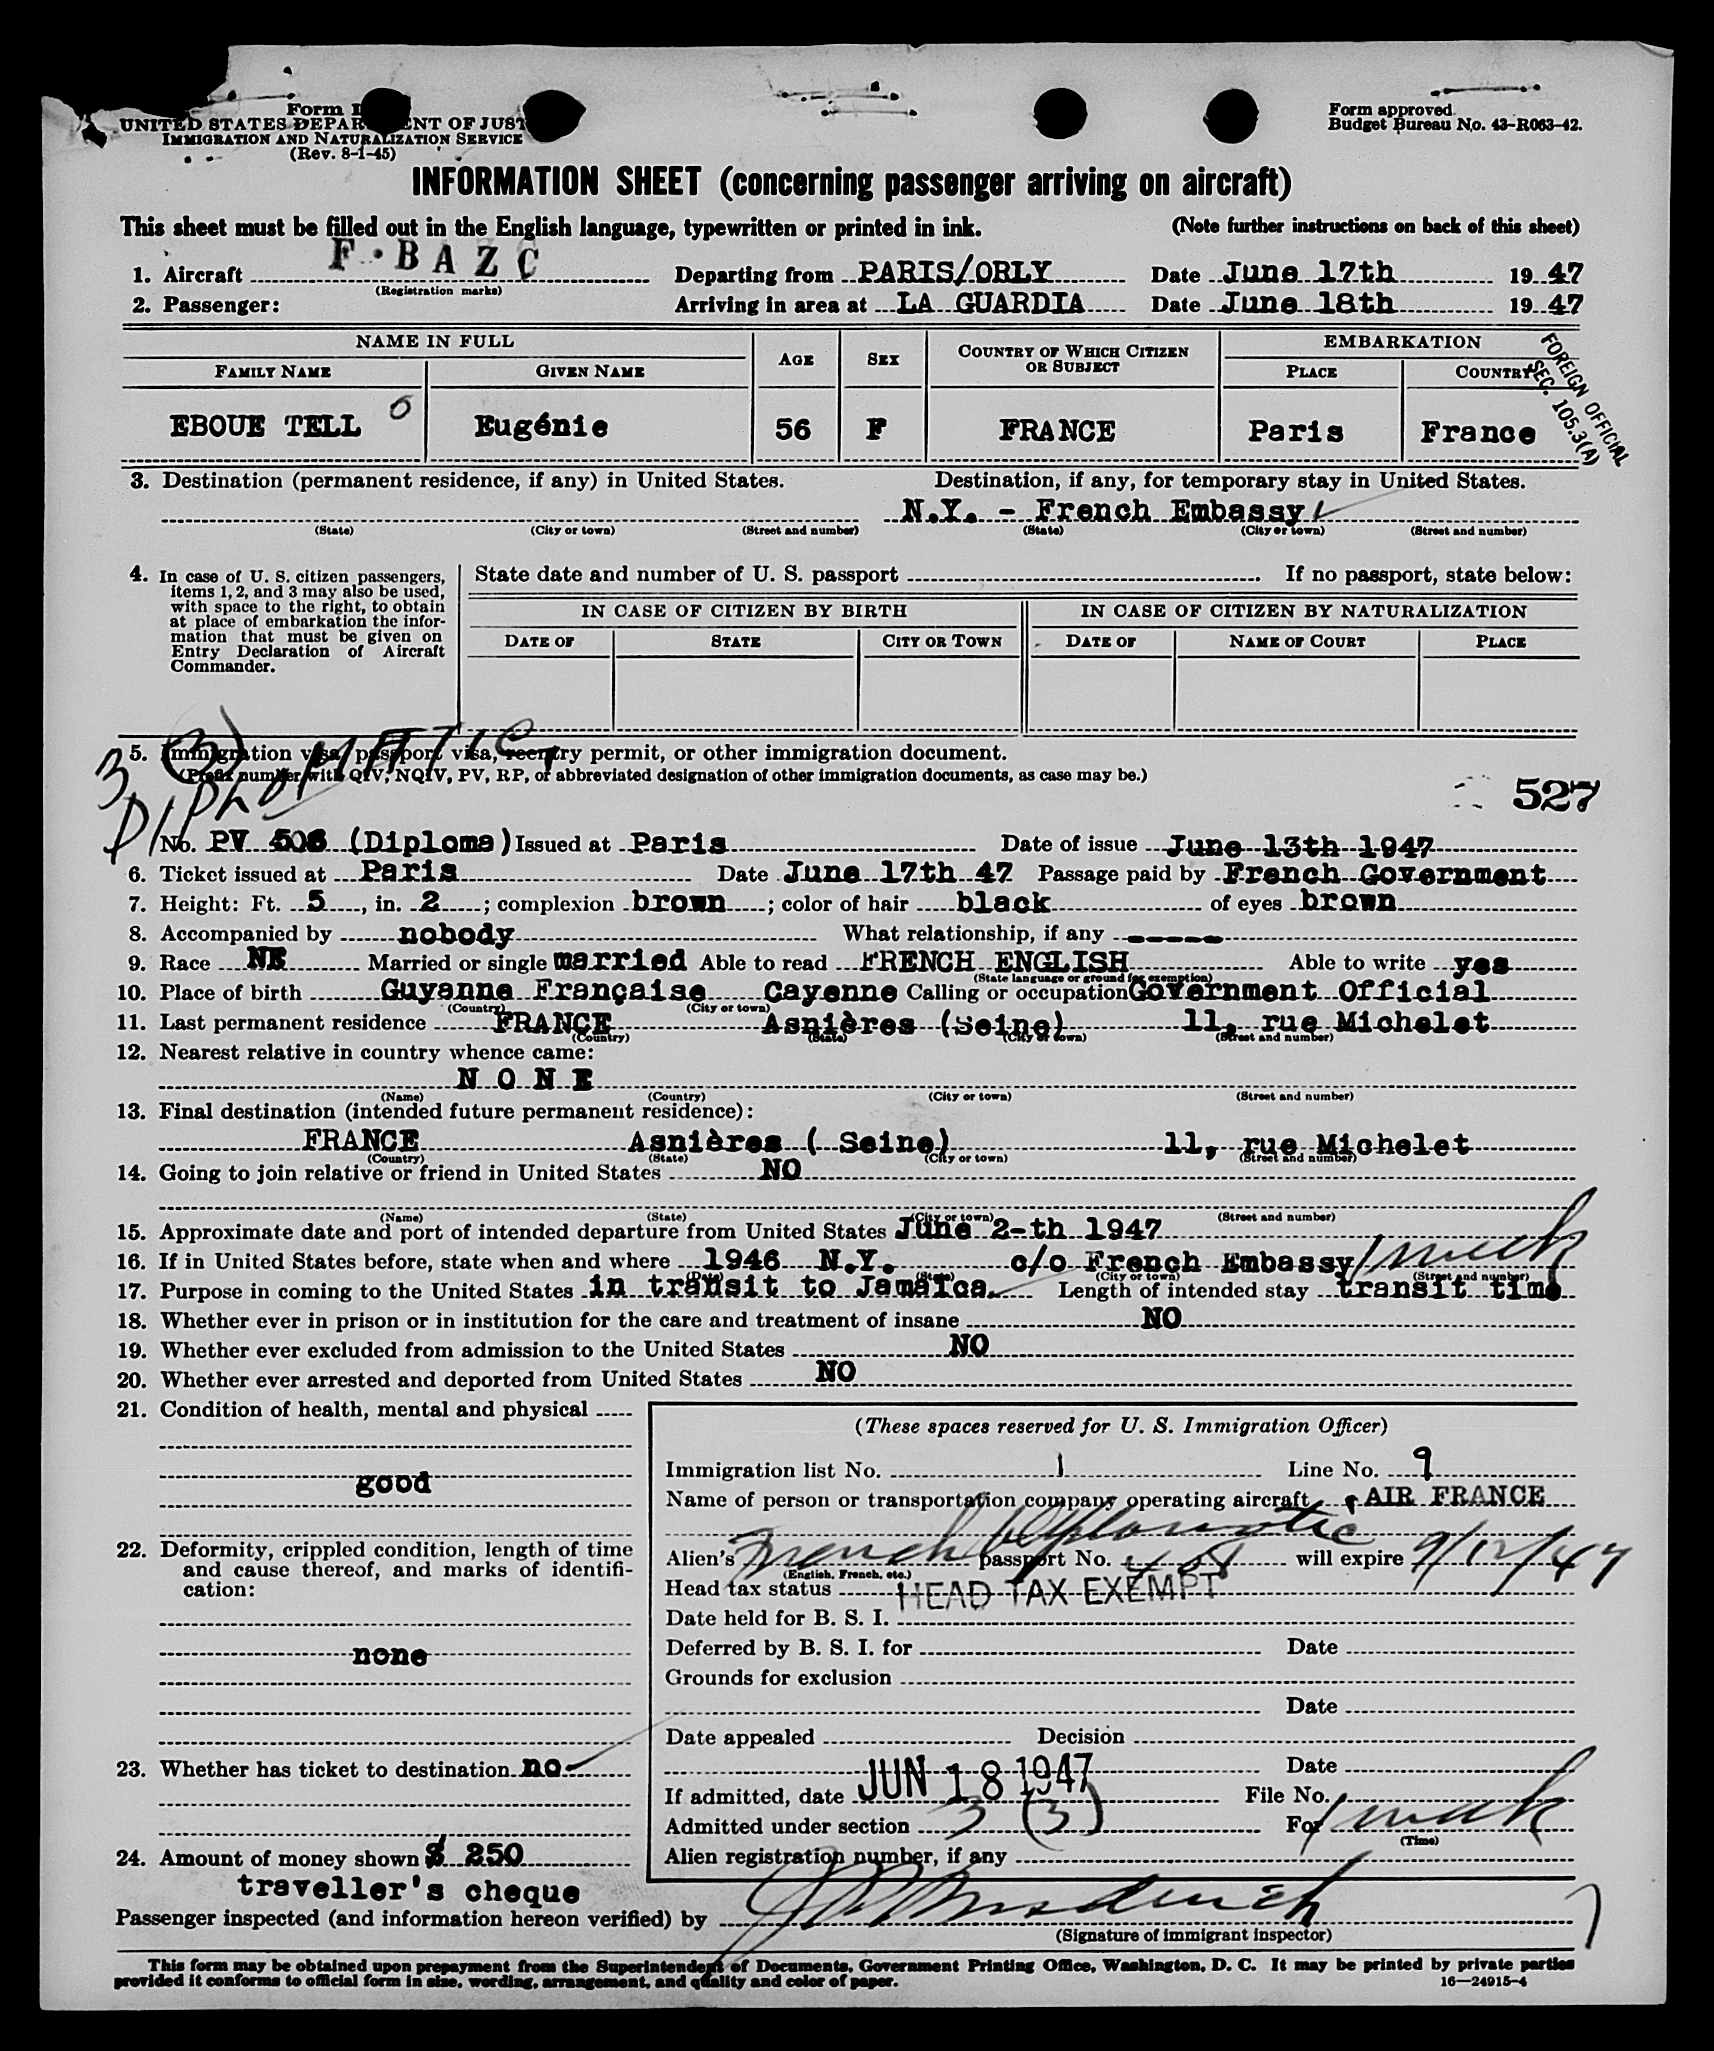 Form I
UNITED STATES DEPAR ENT OF JUST
IMMIGRATION AND NATURALIZATION SERVICE
(Rev. 8-1-45)
Form approved.
Budget Bureau No. 43-R063-42.
INFORMATION SHEET (concerning passenger arriving on aircraft)
This sheet must be filled out in the English language, typewritten or printed in ink. (Note further instructions on back of this sheet)
1. Aircraft F.BAZC Departing from PARIS/ORLY Date June 17th 1947
(Registration marks)
2. Passenger: Arriving in area at LA GUARDIA Date June 18th 1947
NAME IN FULL AGE SEX COUNTRY OF WHICH CITIZEN OR SUBJECT EMBARKATION
FAMILY NAME GIVEN NAME PLACE COUNTRY
FOREIGN OFFICIAL
SEC. 105.3(A)
EBOUE TELL Eugénie 56 F FRANCE Paris France
3. Destination (permanent residence, if any) in United States. Destination, if any, for temporary stay in United States.
N.Y. - French Embassy
(State) (City or town) (Street and number) (State) (City or town) (Street and number)
4. In case of U. S. citizen passengers, items 1, 2, and 3 may also be used, with space to the right, to obtain at place of embarkation the information that must be given on Entry Declaration of Aircraft Commander.
State date and number of U. S. passport . If no passport, state below:
IN CASE OF CITIZEN BY BIRTH IN CASE OF CITIZEN BY NATURALIZATION
DATE OF STATE CITY OR TOWN DATE OF NAME OF COURT PLACE
5. Immigration visa, passport visa, reentry permit, or other immigration document.
(Prefix number with QIV, NQIV, PV, RP, or abbreviated designation of other immigration documents, as case may be.)
3 (3)
DIPLOMATIC
527
No. PV 506 (Diploma) Issued at Paris Date of issue June 13th 1947
6. Ticket issued at Paris Date June 17th 47 Passage paid by French Government
7. Height: Ft. 5, in. 2; complexion brown; color of hair black of eyes brown
8. Accompanied by nobody What relationship, if any -----
9. Race NE Married or single married Able to read FRENCH ENGLISH Able to write yes
(State language or ground for exemption)
10. Place of birth Guyanne Française Cayenne Calling or occupation Government Official
(Country) (City or town)
11. Last permanent residence FRANCE Asnières (Seine) 11, rue Michelet
(Country) (State) (City or town) (Street and number)
12. Nearest relative in country whence came:
NONE
(Name) (Country) (City or town) (Street and number)
13. Final destination (intended future permanent residence):
FRANCE Asnières ( Seine) 11, rue Michelet
(Country) (State) (City or town) (Street and number)
14. Going to join relative or friend in United States NO
(Name) (State) (City or town) (Street and number)
15. Approximate date and port of intended departure from United States June 2-th 1947
16. If in United States before, state when and where 1946 N.Y. c/o French Embassy 1 week
(Date) (State) (City or town) (Street and number)
17. Purpose in coming to the United States in transit to Jamaica. Length of intended stay transit time
18. Whether ever in prison or in institution for the care and treatment of insane NO
19. Whether ever excluded from admission to the United States NO
20. Whether ever arrested and deported from United States NO
21. Condition of health, mental and physical
good
22. Deformity, crippled condition, length of time and cause thereof, and marks of identification:
none
23. Whether has ticket to destination no
24. Amount of money shown $ 250
traveller's cheque
(These spaces reserved for U. S. Immigration Officer)
Immigration list No. 1 Line No. 9
Name of person or transportation company operating aircraft AIR FRANCE
Alien's French Diplomatic passport No. 458 will expire 9/12/47
(English, French, etc.)
Head tax status HEAD TAX EXEMPT
Date held for B. S. I.
Deferred by B. S. I. for Date
Grounds for exclusion
Date
Date appealed Decision
Date
If admitted, date JUN 18 1947 File No.
Admitted under section 3 (3) For 1 week
(Time)
Alien registration number, if any
Passenger inspected (and information hereon verified) by
(Signature of immigrant inspector)
This form may be obtained upon prepayment from the Superintendent of Documents, Government Printing Office, Washington, D. C. It may be printed by private parties
provided it conforms to official form in size, wording, arrangement, and quality and color of paper. 16—24915-4